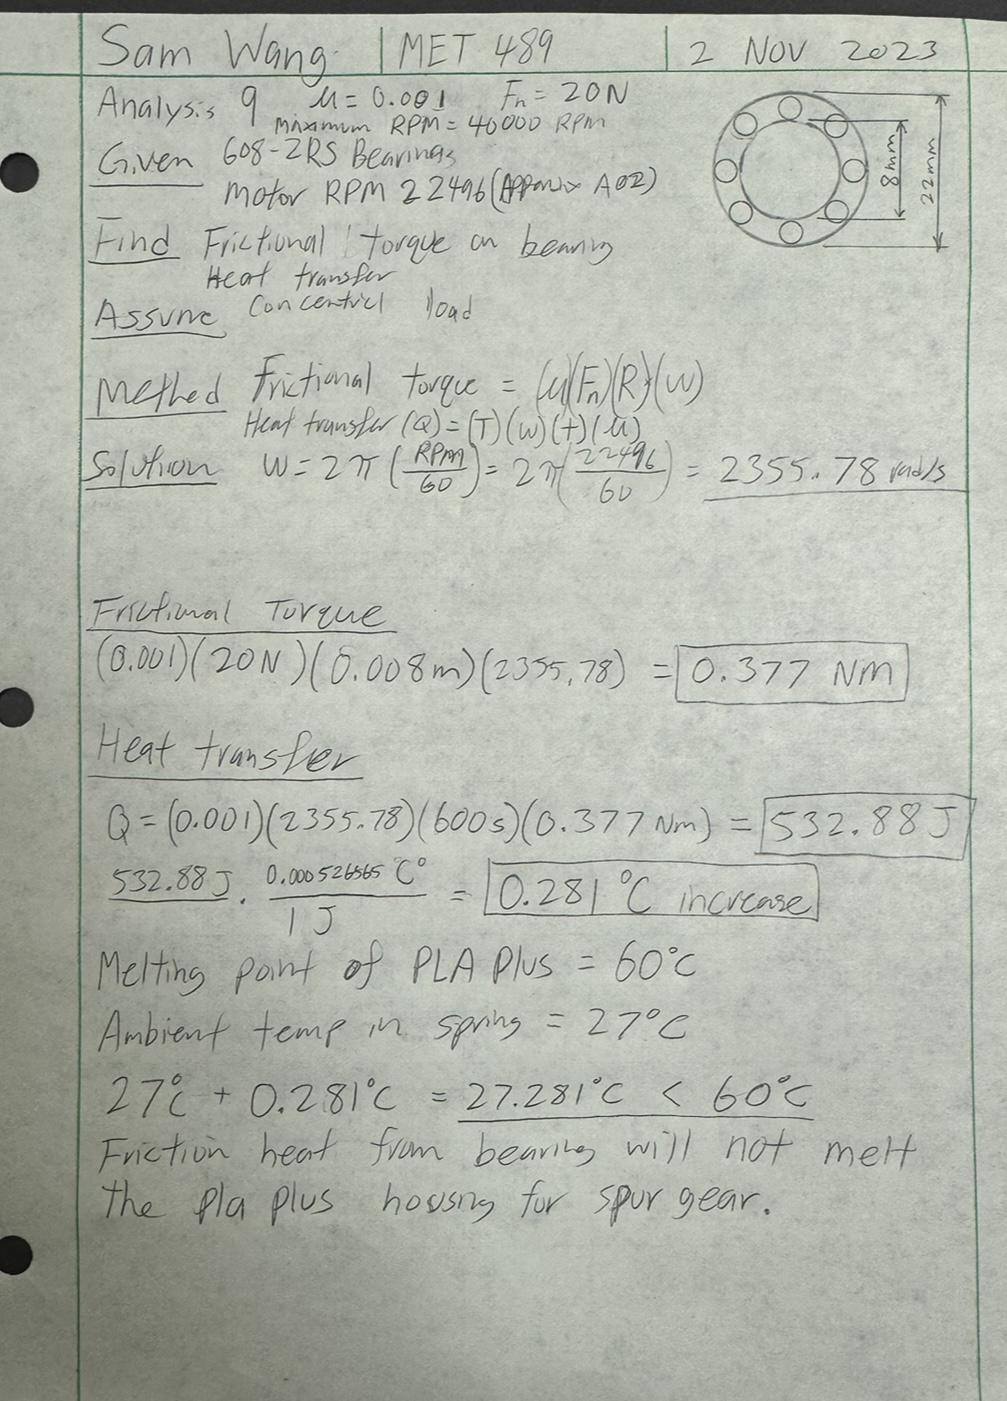 Sam Wang | MET 489 | 2 NOV 2023
Analysis 9 μ = 0.001 Fn = 20N
maximum RPM = 40000 RPM
Given 608-2RS Bearings
Motor RPM 22496 (Appendix A02)
8mm
22mm
Find Frictional torque on bearing
Heat transfer
Assume Concentricl load
Method Frictional torque = (μ)(Fn)(R)(W)
Heat transfer (Q) = (T)(W)(t)(μ)
Solution W = 2π (RPM/60) = 2π (22496/60) = 2355.78 rad/s
Frictional Torque
(0.001)(20N)(0.008m)(2355.78) = 0.377 Nm
Heat transfer
Q = (0.001)(2355.78)(600s)(0.377 Nm) = 532.88 J
532.88 J · 0.000526565 C° / 1 J = 0.281 °C increase
Melting point of PLA Plus = 60°C
Ambient temp in spring = 27°C
27°C + 0.281°C = 27.281°C < 60°C
Friction heat from bearing will not melt
the pla plus housing for spur gear.